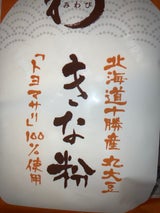 みわび
北海道十勝産 丸大豆
きな粉
「トヨマサリ」100%使用